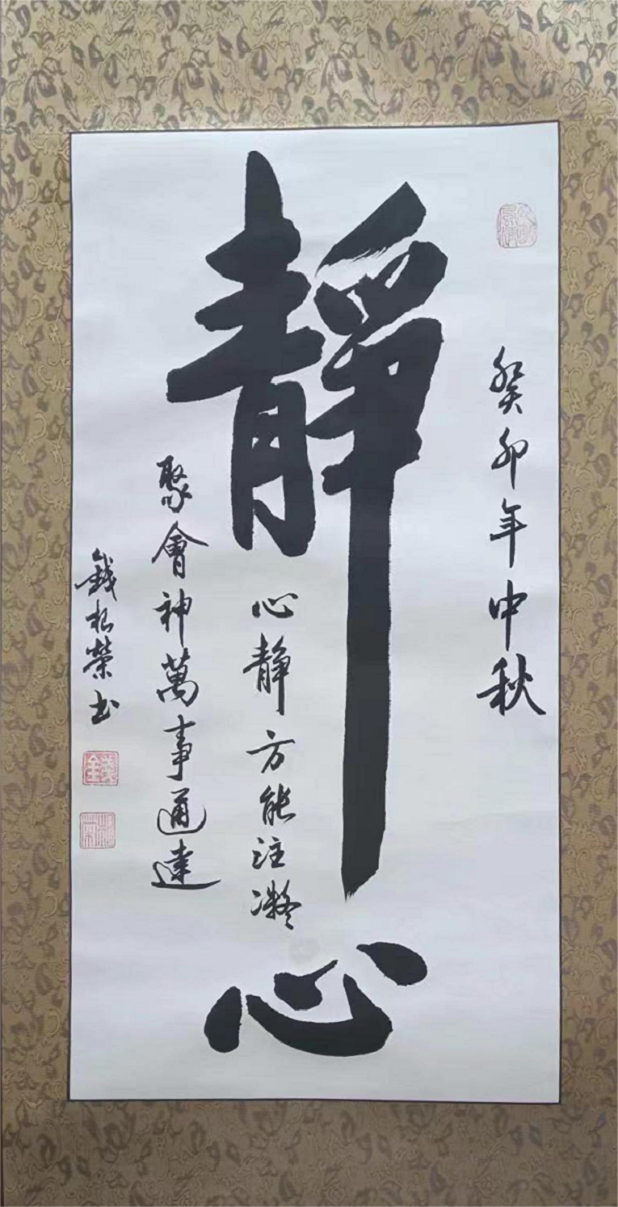 癸卯年中秋
靜心
心靜方能注凝
聚會神萬事通達
錢松榮书